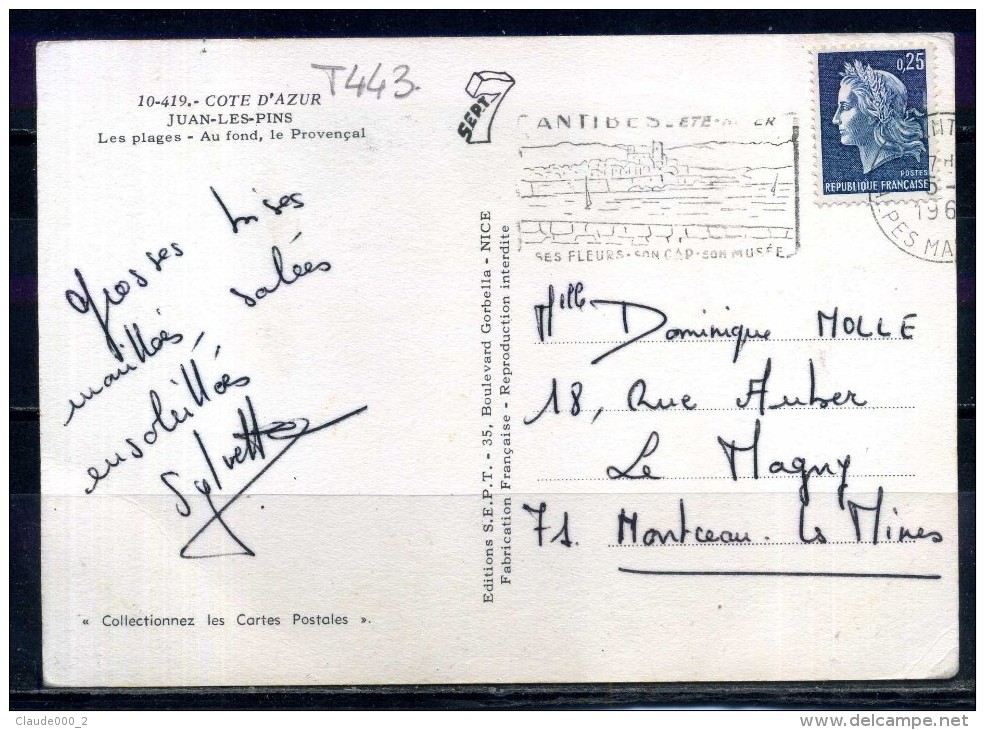 10-419. - COTE D'AZUR
JUAN-LES-PINS
Les plages - Au fond, le Provençal
T443.
SEPT
7
ANTIBES - ETE -
SES FLEURS - SON CAP - SON MUSÉE
0,25
POSTES
REPUBLIQUE FRANÇAISE
196
PES MA
Grosses bises
mouillées, salées
ensoleillées
Sylvette
Editions S.E.P.T. - 35, Boulevard Gorbella - NICE
Fabrication Française - Reproduction interdite
Mlle Dominique MOLLE
18, Rue Auber
Le Magny
71. Montceau-les Mines
« Collectionnez les Cartes Postales ».
Claude000_2
www.delcampe.net